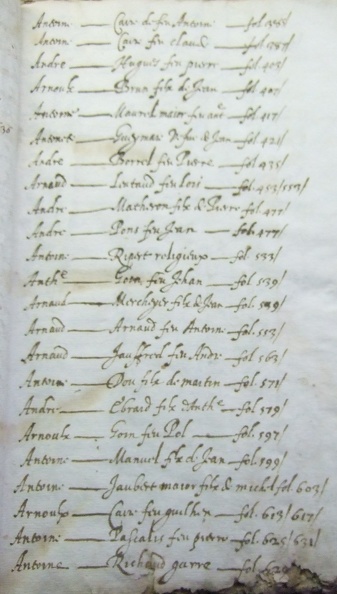 Antoine — Caire de feu Antoine — fol. 388/
Antoine — Caire feu claud — fol. 389/
Andre — Hugues feu pierre — fol. 403/
Arnoulx — Brun filz de Jean — fol. 407/
Antoine — Maurel maior feu ant.e — fol. 417/
Antoine — Gueymar feu Jean — fol. 421/
Andre — Borrel feu Pierre — fol. 435/
Arnaud — Lentaud feu — fol. 453/557/
Andre — Matheron filz de Pierre fol. 477/
Andre — Pons feu Jean — fol. 477/
Antoine — Ripert religieux — fol. 533/
Anth.e — feu Johan — fol. 539/
Arnaud — Mercheyer filz de Jean — fol. 549/
Arnaud — Arnaud feu Antoine — fol. 553/
Arnaud — Jaufred feu Andre — fol. 563/
Antoine — Dou filz de martin — fol. 571/
Andre — Ebrard filz d'Anth.e — fol. 579/
Arnoulx — Goin feu Pol — fol. 597/
Antoine — Manuel filz de Jean — fol. 599/
Antoine — Jaubert maior filz de michel fol. 603/
Arnoulx — Caire feu guilhen — fol. 613/617/
Antoine — Pascalis feu pierre — fol. 625/631/
Antoine — Richaud garre — fol.